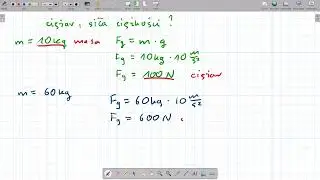 ciężar, siła ciężkości?
m = 10 kg masa Fg = m · g
Fg = 10 kg · 10 m/s²
Fg = 100 N ciężar
m = 60 kg Fg = 60 kg · 10 m/s²
Fg = 600 N